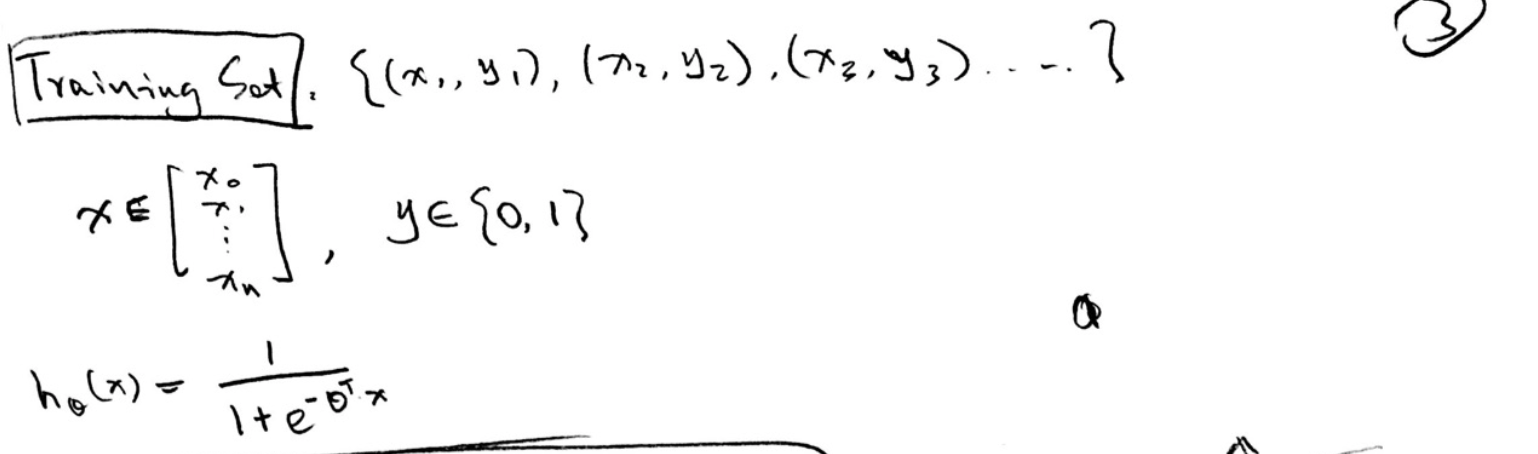 ③
Training Set. {(x₁, y₁), (x₂, y₂), (x₃, y₃) . . . . . }
x ∈ [x₀ x₁ ⋮ xₙ], y ∈ {0, 1}
h_θ(x) = 1 / (1 + e^(-θᵀx))